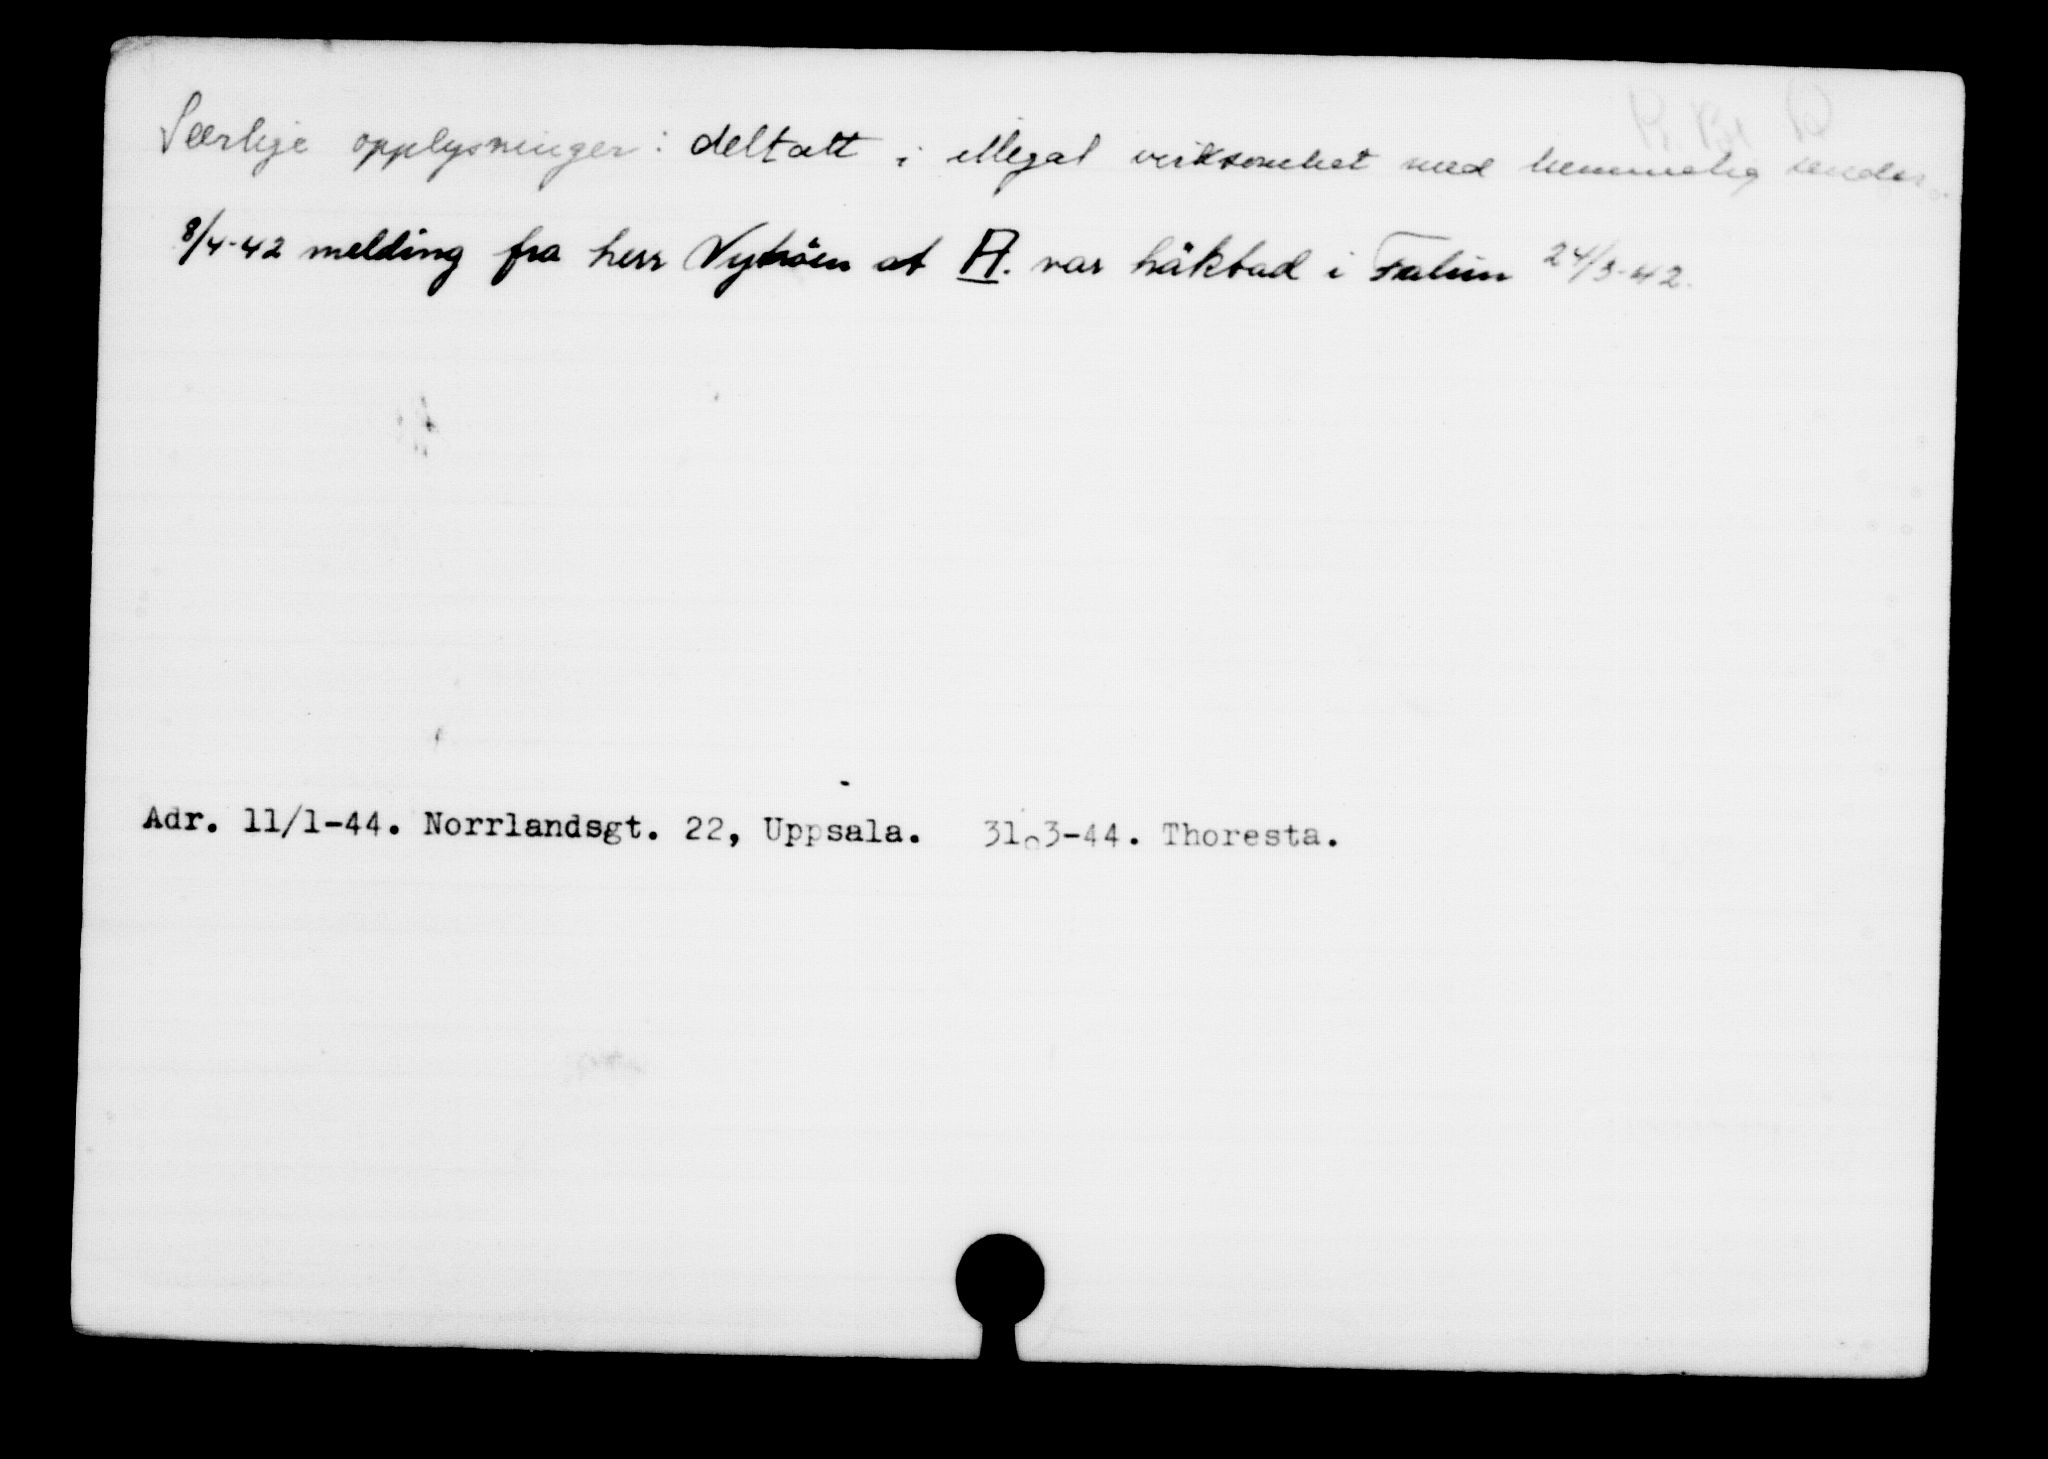 Særlige opplysninger: deltatt i illegal virksomhet med hemmelig sender.
8/4-42 melding fra herr Nyström at A. var häktad i Falun 24/3-42.
Adr. 11/1-44. Norrlandsgt. 22, Uppsala. 31.3-44. Thoresta.